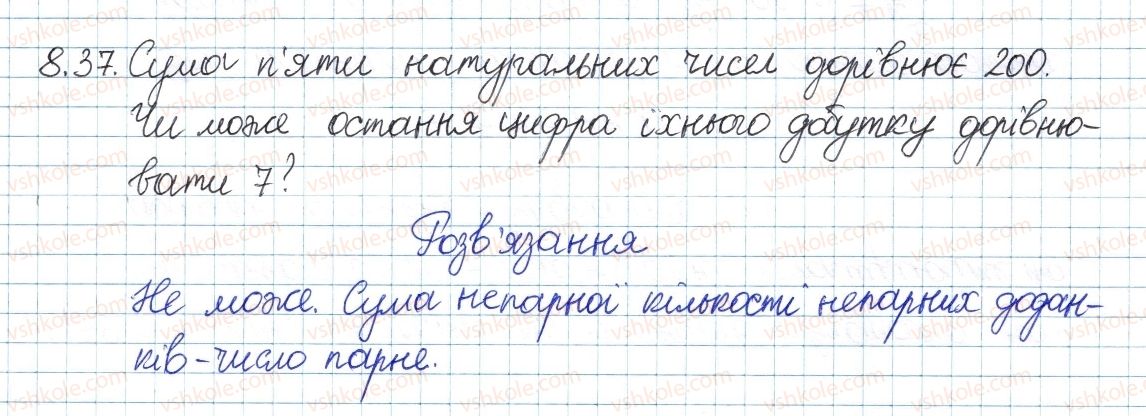 8.37. Сума п'яти натуральних чисел дорівнює 200.
Чи може остання цифра їхнього добутку дорівню-
вати 7?
Розв'язання
Не може. Сума непарної кількості непарних додан-
ків - число парне.